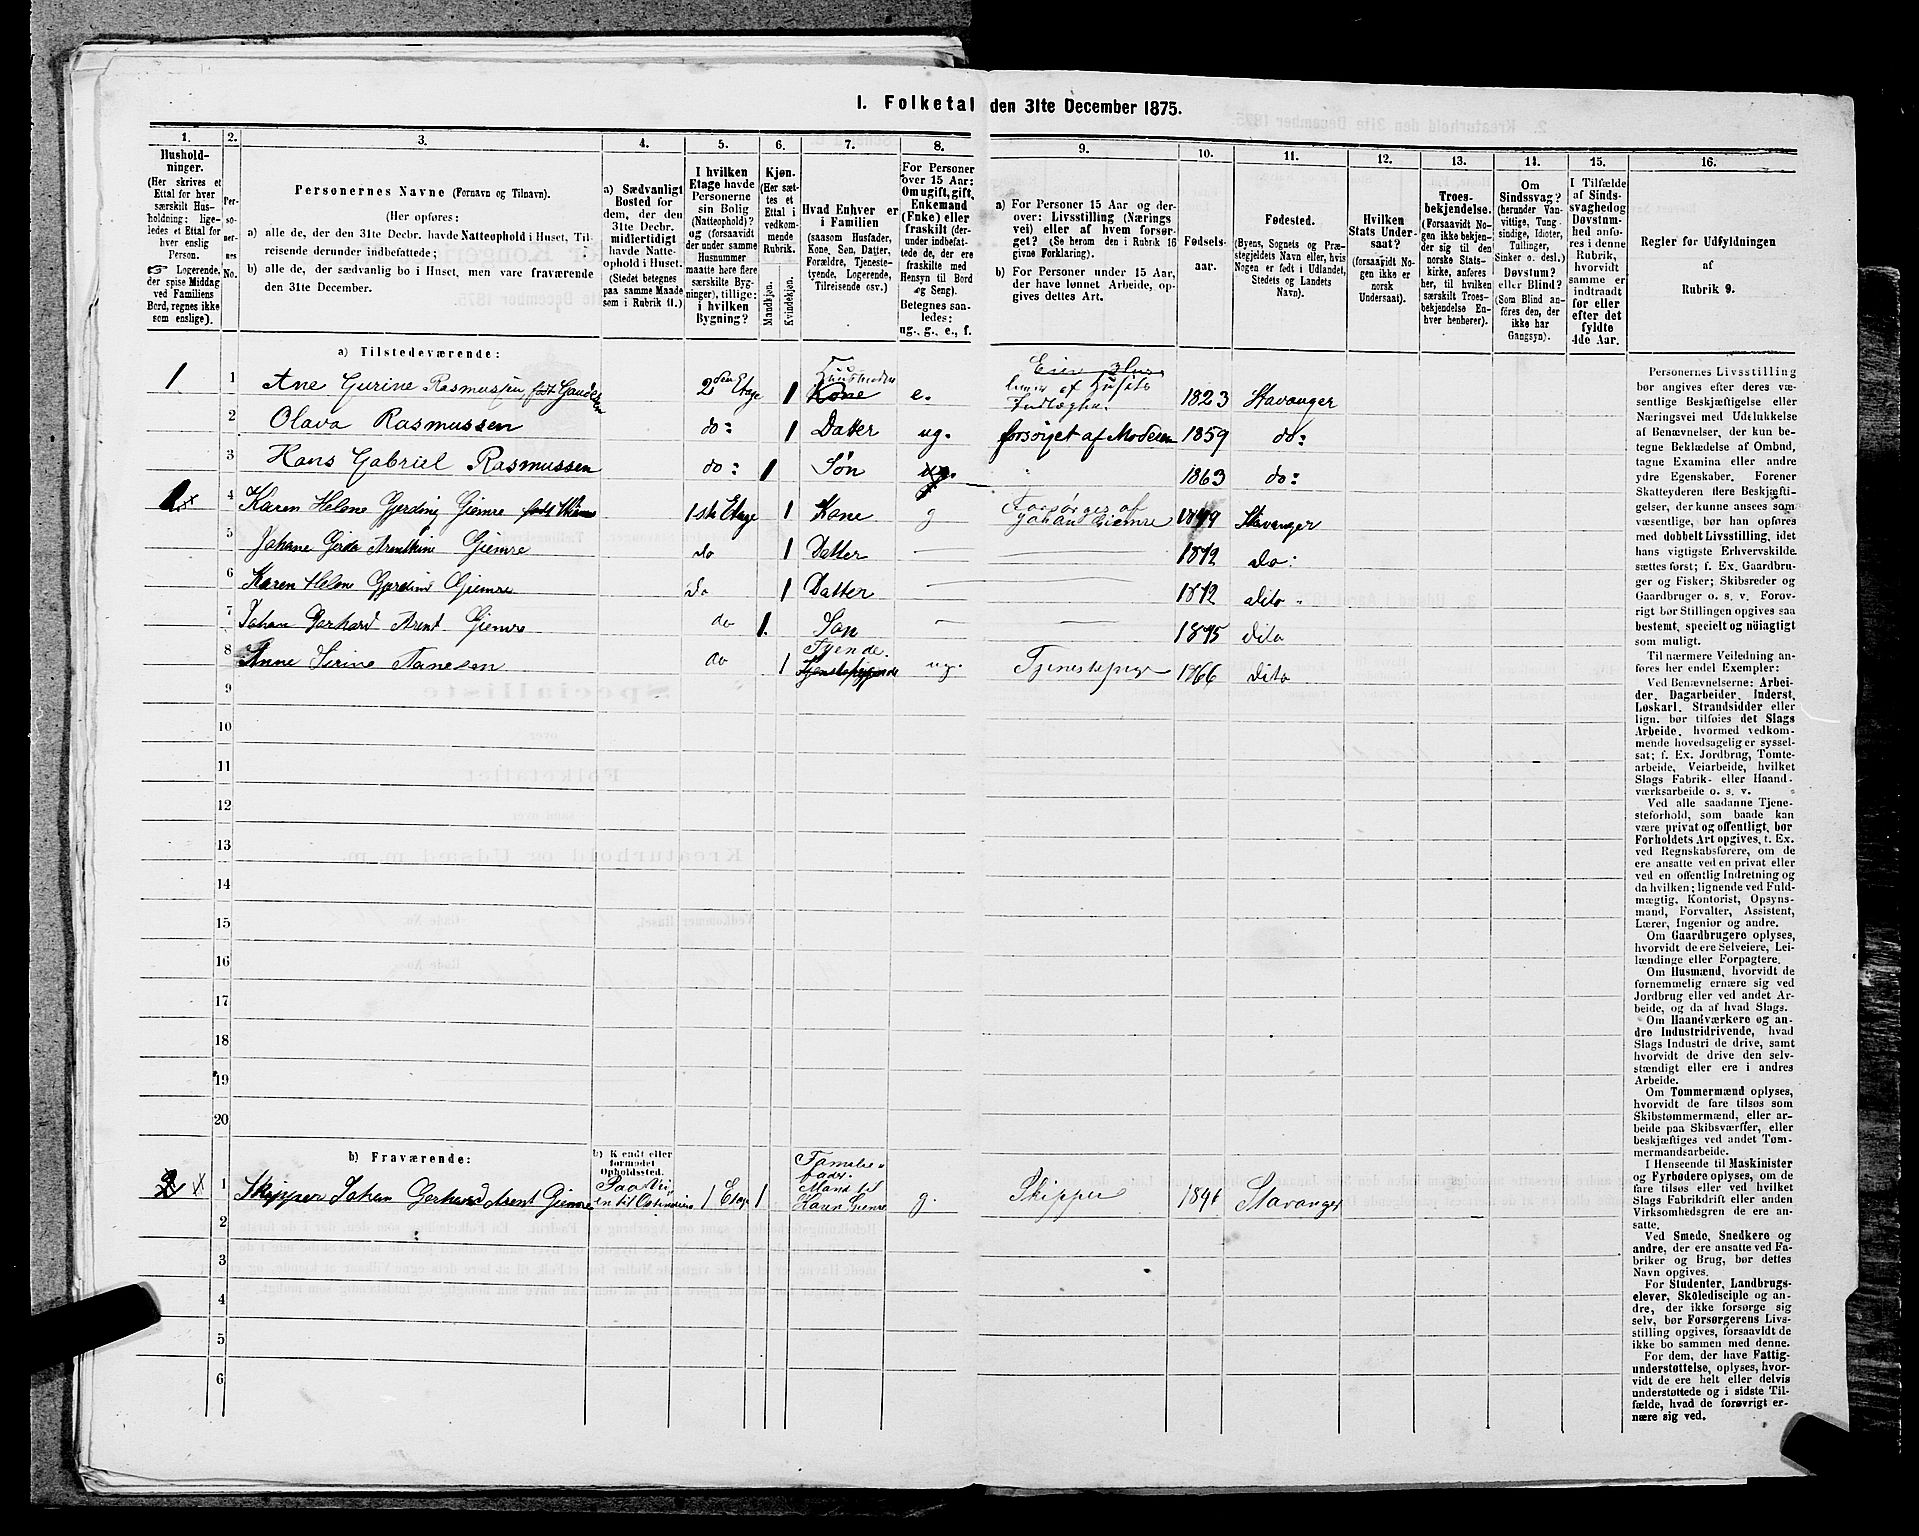 1. Folketal den 31te December 1875.
1. 2. 3. 4. 5. 6. 7. 8. 9. 10. 11. 12. 13. 14. 15. 16.
Hushold-
ninger.
(Her skrives et
Ettal for hver
særskilt Hus-
holdning; lige-
ledes et Ettal for
hver enslig
Person.
☞ Logerende,
der spise Middag
ved Familiens
Bord, regnes ikke
som enslige).
Per-
so-
ner-
nes
No.
Personernes Navne (Fornavn og Tilnavn).
(Her opføres:
a) alle de, der den 31te Decbr. havde Natteophold i Huset, Til-
reisende derunder indbefattede;
b) alle de, der sædvanlig bo i Huset, men vare fraværende
den 31te December.
a) Sædvanligt
Bosted for
dem, der den
31te Decbr.
midlertidigt
havde Natte-
ophold i Huset.
(Stedet betegnes
paa samme Maade
som i Rubrik 11.)
I hvilken
Etage havde
Personerne
sin Bolig
(Natteophold)?
og (forsaavidt
der under samme
Husnummer
maatte være flere
særskilte Byg-
ninger), tillige:
i hvilken
Bygning?
Kjøn.
(Her sæt-
tes et
Ettal i
vedkom-
mende
Rubrik.
Mandkjøn.
Kvindekjøn.
Hvad Enhver er
i Familien
(saasom Husfader,
Kone, Søn, Datter,
Forældre, Tjeneste-
tyende, Logerende,
Tilreisende osv.)
For Personer
over 15 Aar:
Om ugift, gift,
Enkemand
(Enke) eller
fraskilt (der-
under indbefat-
tede de, der ere
fraskilte med
Hensyn til Bord
og Seng).
Betegnes saa-
ledes:
ug., g., e., f.
a) For Personer 15 Aar og der-
over: Livsstilling (Nærings
vei) eller af hvem forsør-
get? (Se herom den i Rubrik 16
givne Forklaring).
b) For Personer under 15 Aar,
der have lønnet Arbeide, op-
gives dettes Art.
Fødsels-
aar.
Fødested.
(Byens, Sognets og Præ-
stegjeldets Navn eller, hvis
Nogen er født i Udlandet,
Stedets og Landets
Navn).
Hvilken
Stats Under-
saat?
(forsaavidt No-
gen ikke er
norsk
Undersaat).
Troes-
bekjendelse.
(Forsaavidt No-
gen ikke bekjen-
der sig til den
norske Stats-
kirke, anføres
her, til hvilken
særskilt Troes-
bekjendelse En-
hver henhører).
Om
Sindssvag?
(herunder Van-
vittige, Tung-
sindige, Idioter,
Tullinger,
Sinker o. desl.)
Døvstum?
eller Blind?
(Som Blind an-
føres den, der
ikke har
Gangsyn).
I Tilfælde
af Sinds-
svaghed og
Døvstum-
hed anfø-
res i denne
Rubrik,
hvorvidt
samme er
indtraadt
før eller
efter det
fyldte
4de Aar.
Regler for Udfyldningen
af
Rubrik 9.
a) Tilstedeværende:
1 1 Ane Gurine Rasmussen, født 2den Etage 1 Kone e. 1823 Stavanger
2 Olava Rasmussen do: 1 Datter ug. forsørget af Moderen 1859 do:
3 Hans Gabriel Rasmussen do: 1 Søn ug. 1863 do:
1 x 4 Karen Helene Gjerding Giemre født 1ste Etage 1 Kone g Forsørges af Johan Giemre 1849 Stavanger
5 Johane Gerda Arentine Giemre do 1 Datter — 1872 do:
6 Karen Helene Gjerdine Giemre do 1 Datter — 1872 dito
7 Johan Gerhard Arent Giemre do 1. Søn — 1875 dito
8 Anne Serine Tanesen do 1 Tyende. ug. Tjenestepige 1866 dito
9
10
11
12
13
14
15
16
17
18
19
20
b) Fraværende:
b) Kjendt eller
formodet
Opholdssted.
2 x 1 Skipper Johan Gerhard Arent Giemre Paa Rei-
en til Ostindien 1 Etage 1 Familie-
fader.
Mand til
Karen Giemre g. Skipper Stavanger
2
3
4
5
6
Personernes Livsstilling
bør angives efter deres væ-
sentlige Beskjæftigelse eller
Næringsvei med Udelukkelse
af Benævnelser, der kun be-
tegne Beklædelse af Ombud,
tagne Examina eller andre
ydre Egenskaber. Forener
Skatteyderen flere Beskjæfti-
gelser, der kunne ansees som
væsentlige, bør han opføres
med dobbelt Livsstilling, idet
hans vigtigste Erhvervskilde
sættes først; f. Ex. Gaardbru-
ger og Fisker; Skibsreder og
Gaardbruger o. s. v. Forøv-
rigt bør Stillingen opgives saa
bestemt, specielt og nöiagtigt
som muligt.
Til nærmere Veiledning an-
føres her endel Exempler:
Ved Benævnelserne: Arbei-
der, Dagarbeider, Inderst,
Løskarl, Strandsidder eller
lign. bør tilføies det Slags
Arbeide, hvormed vedkom-
mende hovedsagelig er syssel-
sat; f. Ex. Jordbrug, Tomte-
arbeide, Veiarbeide, hvilket
Slags Fabrik- eller Haand-
værksarbeide o. s. v.
Ved alle saadanne Tjene-
steforhold, som baade kan
være privat og offentligt, bør
Forholdets Art opgives, t. Ex.
ved Regnskabsførere, om de
ere ansatte ved en privat eller
ved en offentlig Indretning og
da hvilken; lignende ved Fuld-
mægtig, Kontorist, Opsyns-
mand, Forvalter, Assistent,
Lærer, Ingeniør og andre.
Om Gaardbrugere oplyses,
hvorvidt de ere Selveiere, Lei-
lændinge eller Forpagtere.
Om Husmænd, hvorvidt de
fornemmelig ernære sig ved
Jordbrug eller ved andet Ar-
beide, og da af hvad Slags.
Om Haandværkere og an-
dre Industridrivende, hvad
Slags Industri de drive, samt
hvorvidt de drive den selv-
stændigt eller ere i andres
Arbeide.
Om Tømmermænd oplyses,
hvorvidt de fare tilsøs som
Skibstømmermænd, eller ar-
beide paa Skibsværfter, eller
beskjæftiges ved andet Tøm-
mermandsarbeide.
I Henseende til Maskinister
og Fyrbødere oplyses, om de
fare tilsøs eller ved hvilket
Slags Fabrikdrift eller anden
Virksomhedsgren de ere an-
satte.
Ved Smede, Snedkere og
andre, der ere ansatte ved Fa-
briker og Brug, bør dettes
Navn opgives.
For Studenter, Landbrugs-
elever, Skoledisciple og an-
dre, der ikke forsørge sig
selv, bør Forsørgerens Livs-
stilling opgives, forsaavidt de
ikke bo sammen med denne.
For dem, der have Fattig-
understøttelse, oplyses, hvor-
vidt de ere helt eller delvis
understøttede og i sidste Til-
fælde, hvad de forøvrigt er-
nære sig ved.